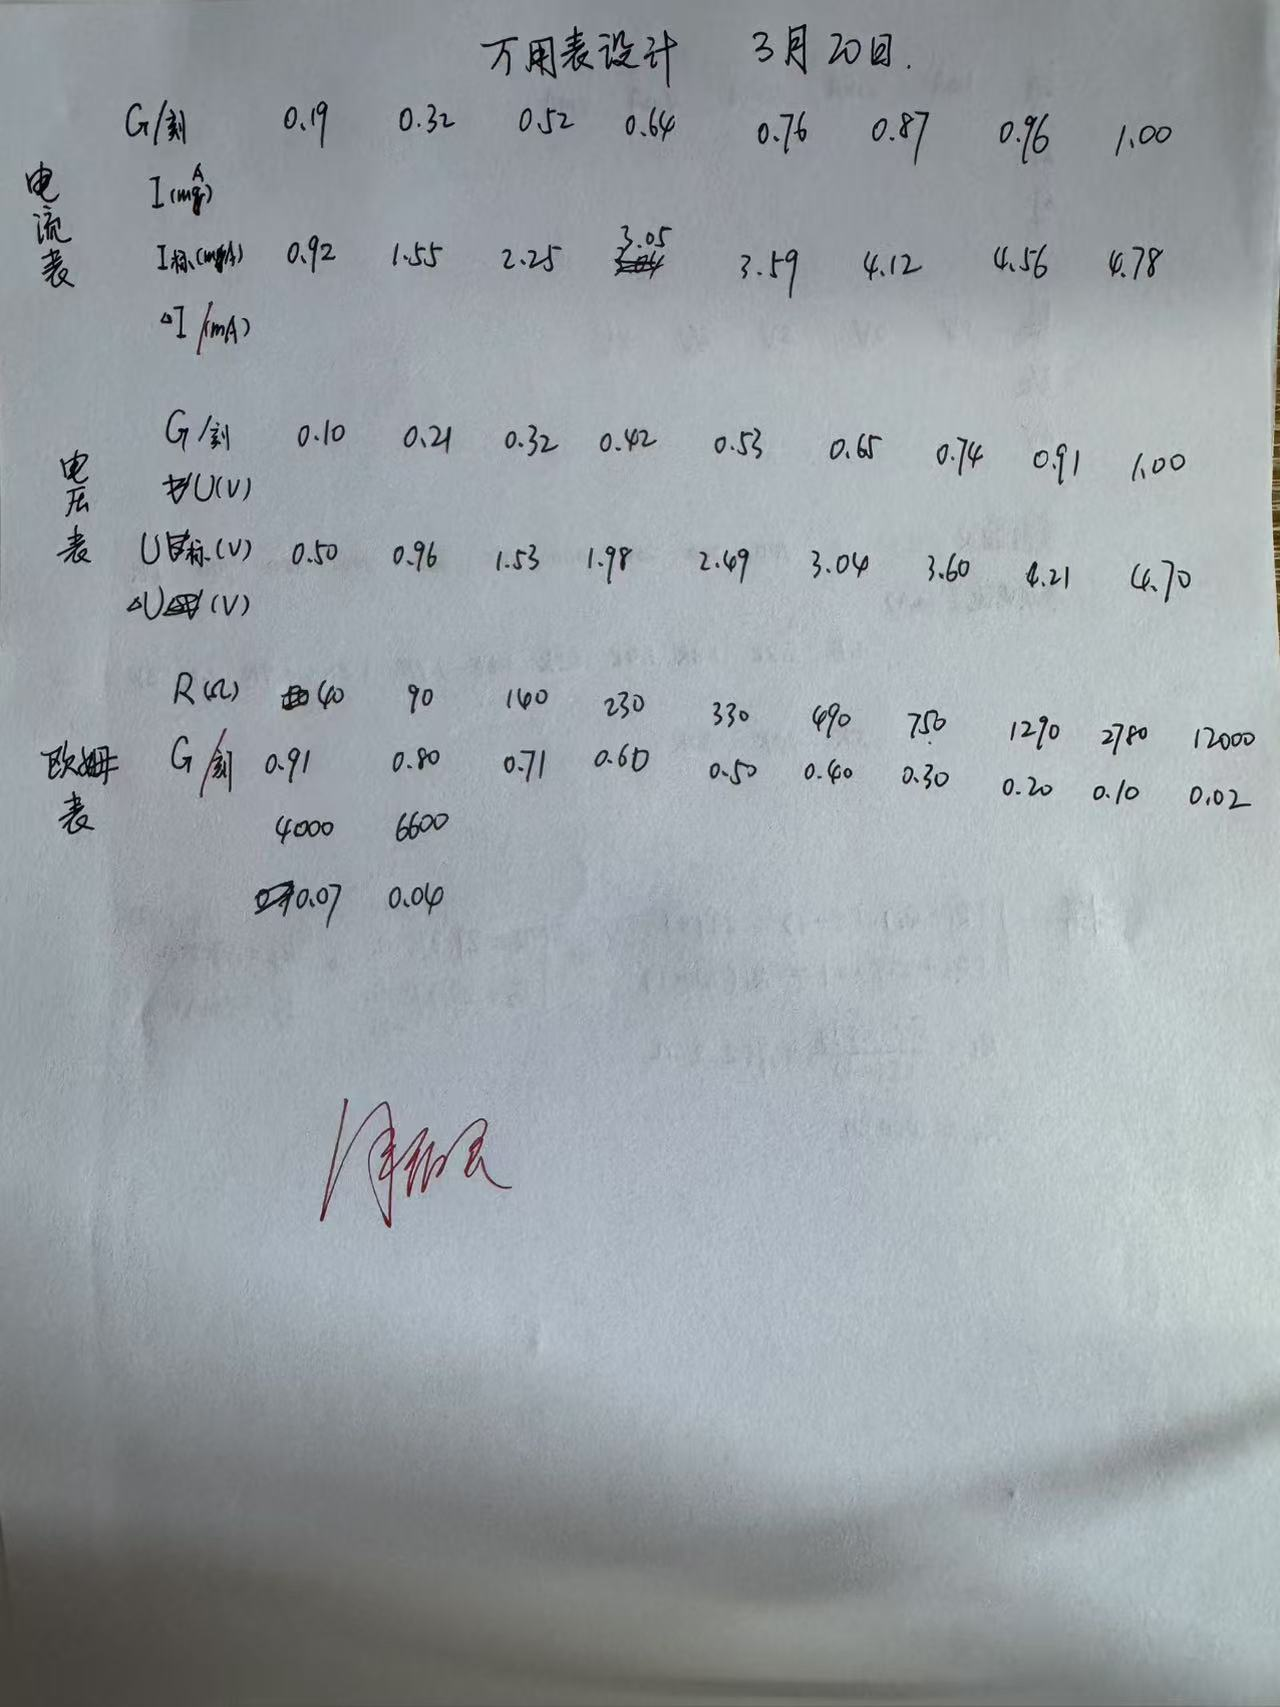 万用表设计 3月20日.
G/刻 0.19 0.32 0.52 0.64 0.76 0.87 0.96 1.00
电流表
I(mA)
I标(mA) 0.92 1.55 2.25 3.05 3.59 4.12 4.56 4.78
△I/(mA)
G/刻 0.10 0.21 0.32 0.42 0.53 0.65 0.74 0.91 1.00
电压表
U(V)
U标(V) 0.50 0.96 1.53 1.98 2.49 3.04 3.60 4.21 4.70
△U(V)
R(Ω) 40 90 140 230 330 490 750 1290 2780 12000
欧姆表
G/刻 0.91 0.80 0.71 0.60 0.50 0.40 0.30 0.20 0.10 0.02
4000 6600
0.07 0.04